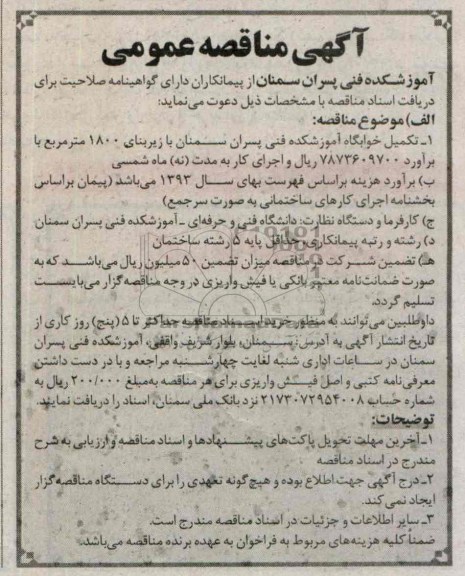 آگهی مناقصه عمومی
آموزشکده فنی پسران سمنان از پیمانکاران دارای گواهینامه صلاحیت برای
دریافت اسناد مناقصه با مشخصات ذیل دعوت می‌نماید:
الف) موضوع مناقصه:
۱ـ تکمیل خوابگاه آموزشکده فنی پسران سمنان با زیربنای ۱۸۰۰ مترمربع با
برآورد ۷۸۷۳۶۰۹۷۰۰ ریال و اجرای کار به مدت (نه) ماه شمسی
ب) برآورد هزینه براساس فهرست بهای سال ۱۳۹۳ می‌باشد (پیمان براساس
بخشنامه اجرای کارهای ساختمانی به صورت سرجمع)
ج) کارفرما و دستگاه نظارت: دانشگاه فنی و حرفه‌ای ـ آموزشکده فنی پسران سمنان
د) رشته و رتبه پیمانکاری: حداقل پایه ۵ رشته ساختمان
هـ) تضمین شرکت در مناقصه میزان تضمین ۵۰ میلیون ریال می‌باشد که به
صورت ضمانت‌نامه معتبر بانکی یا فیش واریزی در وجه مناقصه‌گزار می‌بایست
تسلیم گردد.
داوطلبین می‌توانند به منظور خرید اسناد مناقصه حداکثر تا ۵ (پنج) روز کاری از
تاریخ انتشار آگهی به آدرس: سمنان، بلوار شریف واقفی، آموزشکده فنی پسران
سمنان در ساعات اداری شنبه لغایت چهارشنبه مراجعه و با در دست داشتن
معرفی‌نامه کتبی و اصل فیش واریزی برای هر مناقصه به‌مبلغ ۲۰۰/۰۰۰ ریال به
شماره حساب ۲۱۷۳۰۷۲۹۵۴۰۰۸ نزد بانک ملی سمنان، اسناد را دریافت نمایند.
توضیحات:
۱ـ آخرین مهلت تحویل پاکت‌های پیشنهادها و اسناد مناقصه و ارزیابی به شرح
مندرج در اسناد مناقصه
۲ـ درج آگهی جهت اطلاع بوده و هیچ گونه تعهدی را برای دستگاه مناقصه‌گزار
ایجاد نمی‌کند.
۳ـ سایر اطلاعات و جزئیات در اسناد مناقصه مندرج است.
ضمناً کلیه هزینه‌های مربوط به فراخوان به عهده برنده مناقصه می‌باشد.